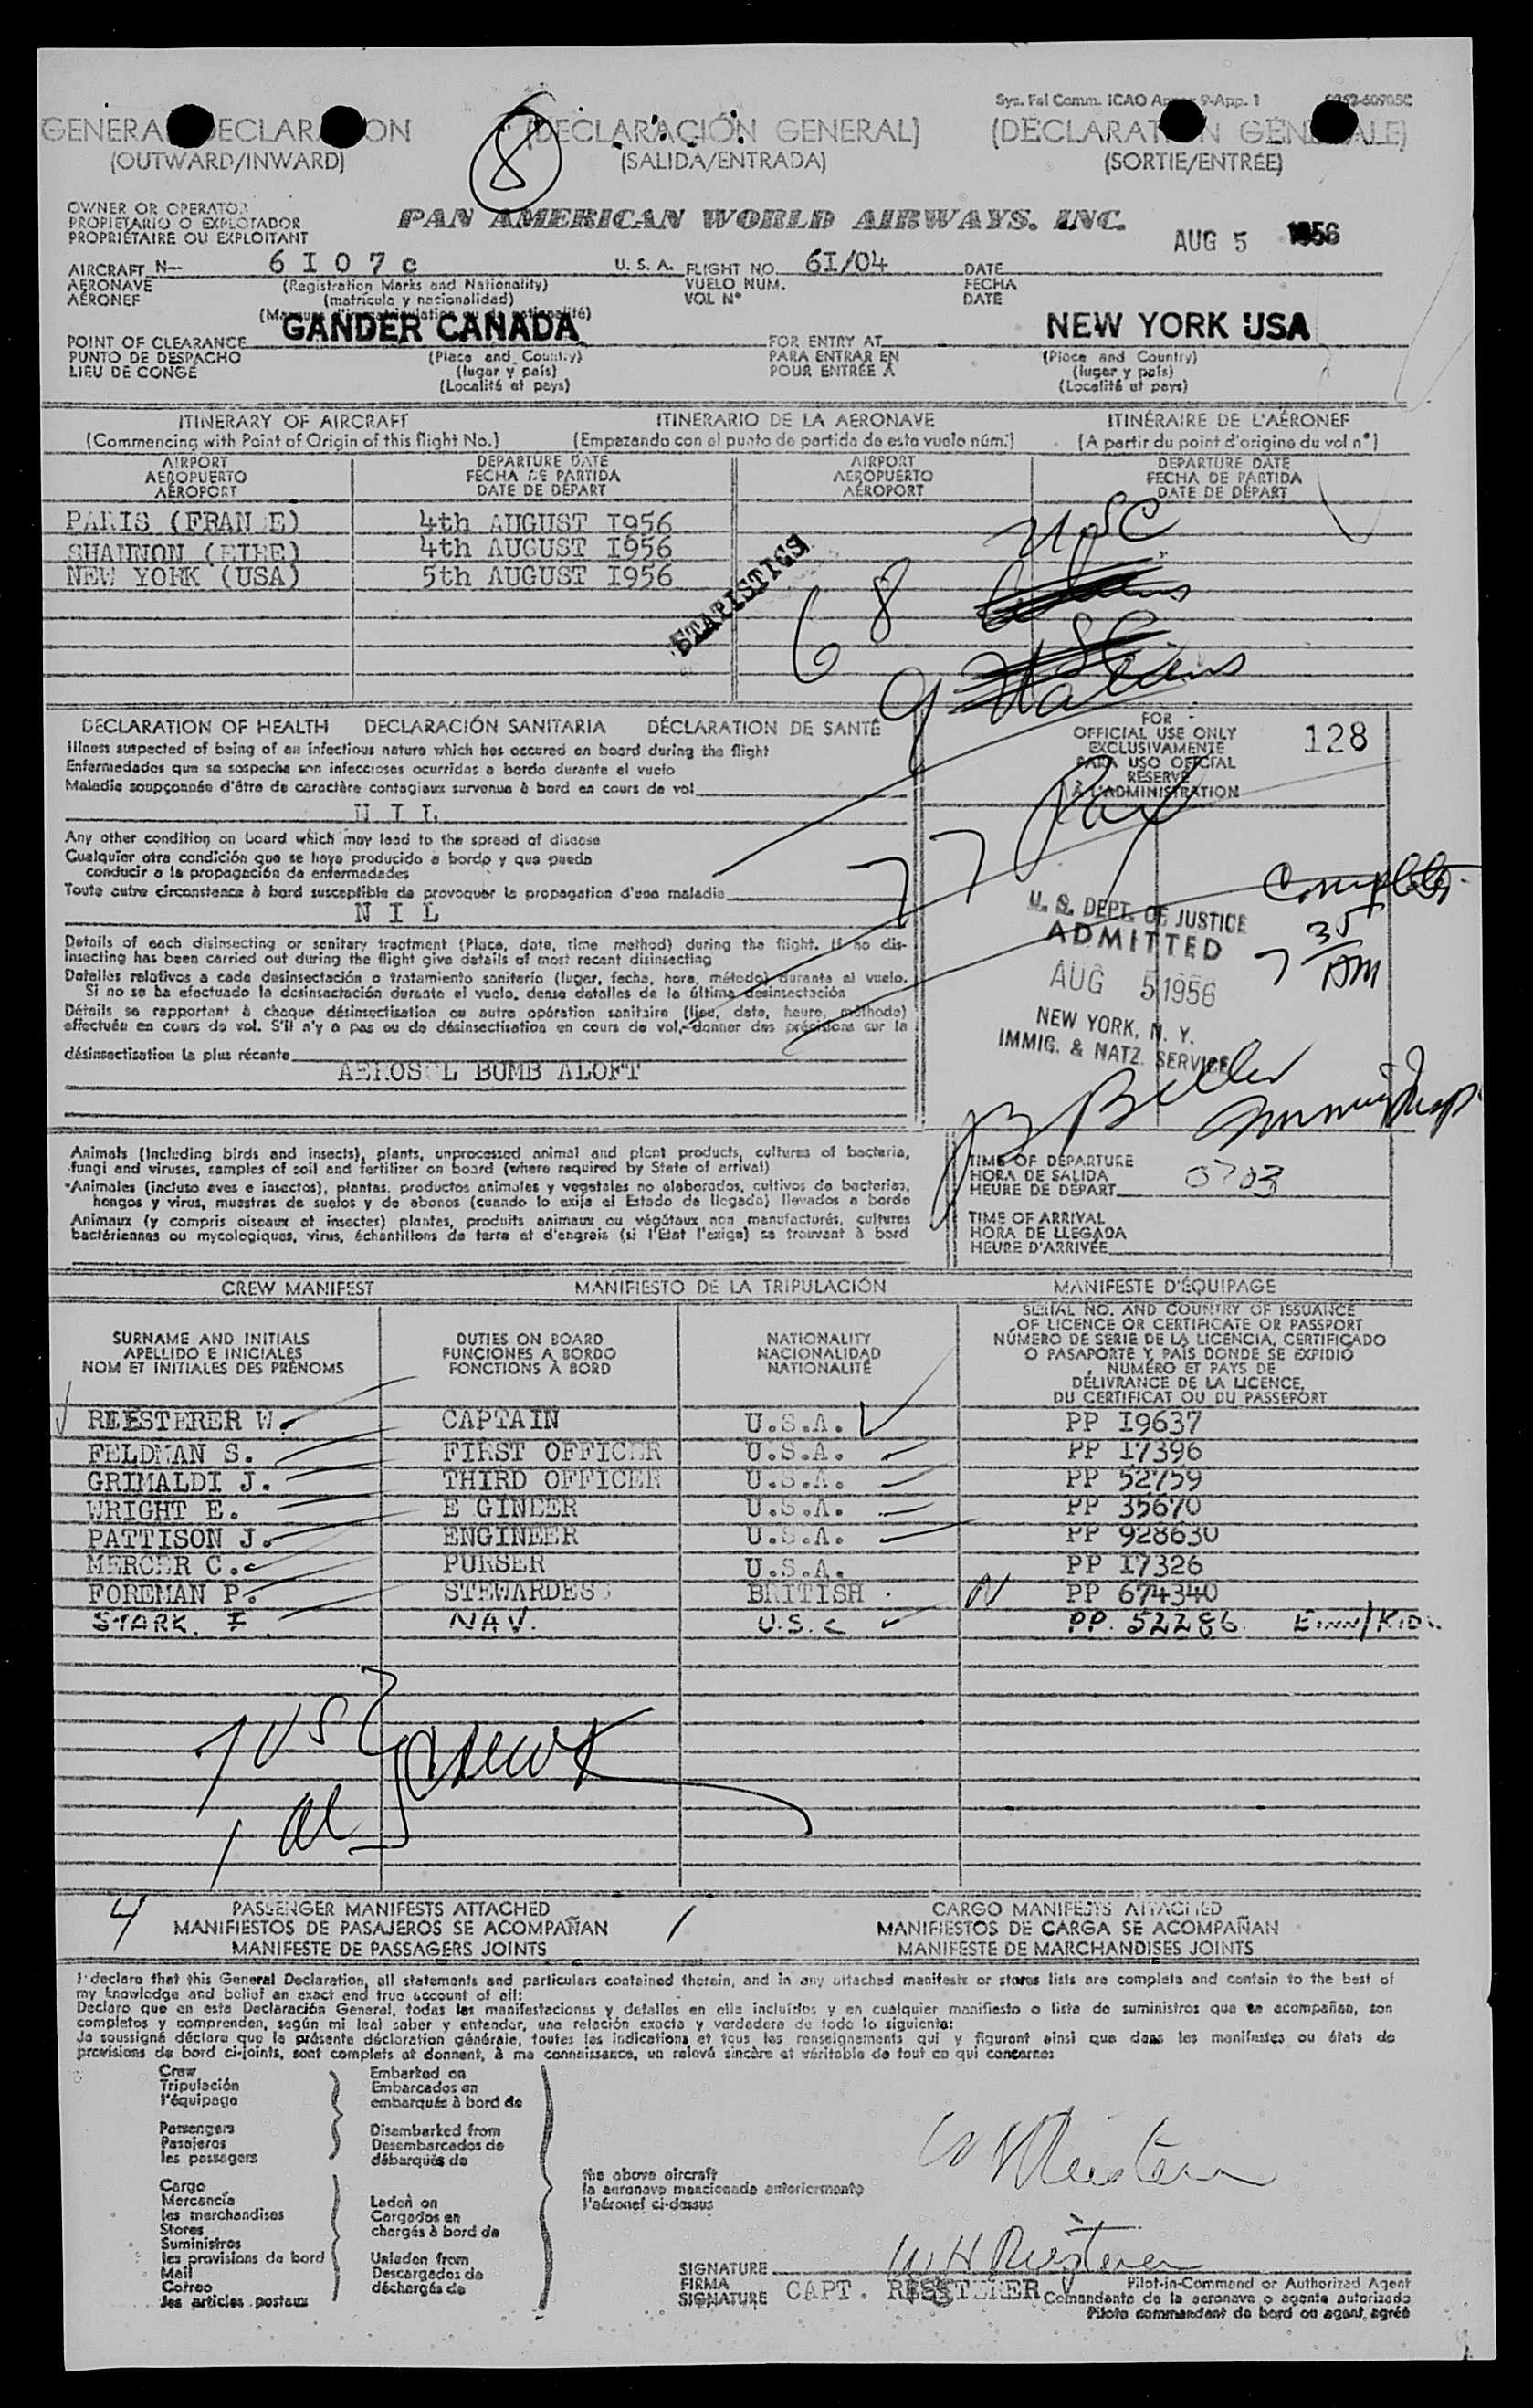 Sys. Fal Comm. ICAO Annex 9-App. 1
GENERAL DECLARATION (DECLARACIÓN GENERAL) (DECLARATION GÉNÉRALE)
(OUTWARD/INWARD) (SALIDA/ENTRADA) (SORTIE/ENTRÉE)
8
OWNER OR OPERATOR
PROPIETARIO O EXPLOTADOR
PROPRIÉTAIRE OU EXPLOITANT
PAN AMERICAN WORLD AIRWAYS. INC.
AUG 5 1956
AIRCRAFT N- 6I07c U. S. A. FLIGHT NO. 6I/04 DATE
AERONAVE (Registration Marks and Nationality) VUELO NUM. FECHA
AÉRONEF (matrícula y nacionalidad) VOL N° DATE
GANDER CANADA NEW YORK USA
POINT OF CLEARANCE FOR ENTRY AT
PUNTO DE DESPACHO (Place and Country) PARA ENTRAR EN (Place and Country)
LIEU DE CONGÉ (lugar y país) POUR ENTRÉE À (lugar y país)
(Localité et pays) (Localité et pays)
ITINERARY OF AIRCRAFT ITINERARIO DE LA AERONAVE ITINÉRAIRE DE L'AÉRONEF
(Commencing with Point of Origin of this flight No.) (Empezando con el punto de partida de este vuelo núm.) (A partir du point d'origine du vol n°)
AIRPORT DEPARTURE DATE AIRPORT DEPARTURE DATE
AEROPUERTO FECHA DE PARTIDA AEROPUERTO FECHA DE PARTIDA
AÉROPORT DATE DE DÉPART AÉROPORT DATE DE DÉPART
PARIS (FRAN E) 4th AUGUST I956
SHANNON (EIRE) 4th AUGUST I956
NEW YORK (USA) 5th AUGUST I956
STATISTICS
68 USC
9 Aliens
DECLARATION OF HEALTH DECLARACIÓN SANITARIA DÉCLARATION DE SANTÉ
Illness suspected of being of an infectious nature which has occured on board during the flight
Enfermedades que se sospecha son infecciosas ocurridas a bordo durante el vuelo
Maladie soupçonnée d'être de caractère contagieux survenue à bord en cours de vol
N I L
Any other condition on board which may lead to the spread of disease
Cualquier otra condición que se haya producido a bordo y que pueda
conducir a la propagación de enfermedades
Toute autre circonstance à bord susceptible de provoquer la propagation d'une maladie
N I L
Details of each disinsecting or sanitary treatment (Place, date, time method) during the flight. If no dis-
insecting has been carried out during the flight give details of most recent disinsecting
Detalles relativos a cada desinsectación o tratamiento sanitario (lugar, fecha, hora, método) durante el vuelo.
Si no se ha efectuado la desinsectación durante el vuelo, dense detalles de la última desinsectación
Détails se rapportant à chaque désinsectisation ou autre opération sanitaire (lieu, date, heure, méthode)
effectuée en cours de vol. S'il n'y a pas eu de désinsectisation en cours de vol, donner des précisions sur la
désinsectisation la plus récente
AEROSOL BOMB ALOFT
FOR
OFFICIAL USE ONLY
EXCLUSIVAMENTE
PARA USO OFICIAL
RÉSERVÉ
À L'ADMINISTRATION
128
77 Pax
Completed
7 35 AM
U. S. DEPT. OF JUSTICE
ADMITTED
AUG 5 1956
NEW YORK, N. Y.
IMMIG. & NATZ. SERVICE
Animals (Including birds and insects), plants, unprocessed animal and plant products, cultures of bacteria,
fungi and viruses, samples of soil and fertilizer on board (where required by State of arrival)
Animales (incluso aves e insectos), plantas, productos animales y vegetales no elaborados, cultivos de bacterias,
hongos y virus, muestras de suelos y de abonos (cuando lo exija el Estado de llegada) llevados a bordo
Animaux (y compris oiseaux et insectes) plantes, produits animaux ou végétaux non manufacturés, cultures
bactériennes ou mycologiques, virus, échantillons de terre et d'engrais (si l'Etat l'exige) se trouvant à bord
TIME OF DEPARTURE
HORA DE SALIDA
HEURE DE DÉPART 0703
TIME OF ARRIVAL
HORA DE LLEGADA
HEURE D'ARRIVÉE
CREW MANIFEST MANIFIESTO DE LA TRIPULACIÓN MANIFESTE D'ÉQUIPAGE
SURNAME AND INITIALS DUTIES ON BOARD NATIONALITY
APELLIDO E INICIALES FUNCIONES A BORDO NACIONALIDAD
NOM ET INITIALES DES PRÉNOMS FONCTIONS À BORD NATIONALITÉ
SERIAL NO. AND COUNTRY OF ISSUANCE
OF LICENCE OR CERTIFICATE OR PASSPORT
NÚMERO DE SERIE DE LA LICENCIA, CERTIFICADO
O PASAPORTE Y PAIS DONDE SE EXPIDIÓ
NUMÉRO ET PAYS DE
DÉLIVRANCE DE LA LICENCE,
DU CERTIFICAT OU DU PASSEPORT
REESTERER W. CAPTAIN U.S.A. PP I9637
FELDMAN S. FIRST OFFICER U.S.A. PP I7396
GRIMALDI J. THIRD OFFICER U.S.A. PP 52759
WRIGHT E. E GINEER U.S.A. PP 35670
PATTISON J. ENGINEER U.S.A. PP 928630
MERCER C. PURSER U.S.A. PP I7326
FOREMAN P. STEWARDESS BRITISH PP 674340
STARK. I NAV. U.S.C PP. 52286
7 USC
1 al
crew
4 PASSENGER MANIFESTS ATTACHED 1 CARGO MANIFESTS ATTACHED
MANIFIESTOS DE PASAJEROS SE ACOMPAÑAN MANIFIESTOS DE CARGA SE ACOMPAÑAN
MANIFESTE DE PASSAGERS JOINTS MANIFESTE DE MARCHANDISES JOINTS
I declare that this General Declaration, all statements and particulars contained therein, and in any attached manifests or stores lists are complete and contain to the best of
my knowledge and belief an exact and true account of all:
Declaro que en esta Declaración General, todas las manifestaciones y detalles en ella incluídos y en cualquier manifiesto o lista de suministros que se acompañan, son
completos y comprenden, según mi leal saber y entender, una relación exacta y verdadera de todo lo siguiente:
Je soussigné déclare que la présente déclaration générale, toutes les indications et tous les renseignements qui y figurent ainsi que dans les manifestes ou états de
provisions de bord ci-joints, sont complets et donnent, à ma connaissance, un relevé sincère et véritable de tout ce qui concerne:
Crew Embarked on
Tripulación Embarcados en
l'équipage embarqués à bord de
Passengers Disembarked from
Pasajeros Desembarcados de
les passagers débarqués de
the above aircraft
la aeronave mencionada anteriormente
l'aéronef ci-dessus
Cargo
Mercancía Laden on
les marchandises Cargados en
Stores chargés à bord de
Suministros
les provisions de bord Unladen from
Mail Descargados de
Correo déchargés de
les articles postaux
W H Reesterer
SIGNATURE W H Reesterer
FIRMA
SIGNATURE CAPT. REESTERER
Pilot-in-Command or Authorized Agent
Comandante de la aeronave o agente autorizado
Pilote commandant de bord ou agent agréé